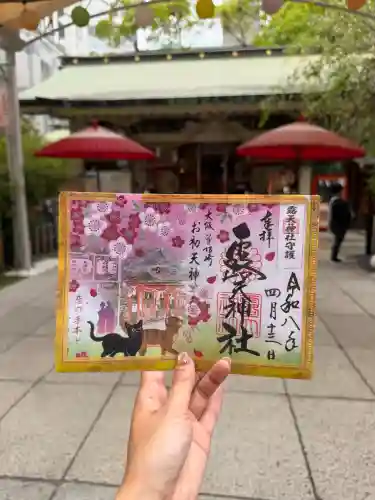 露天神社守護
奉拝
露天神社
令和八年
四月十三日
大阪曽根崎
お初天神
恋の手本と